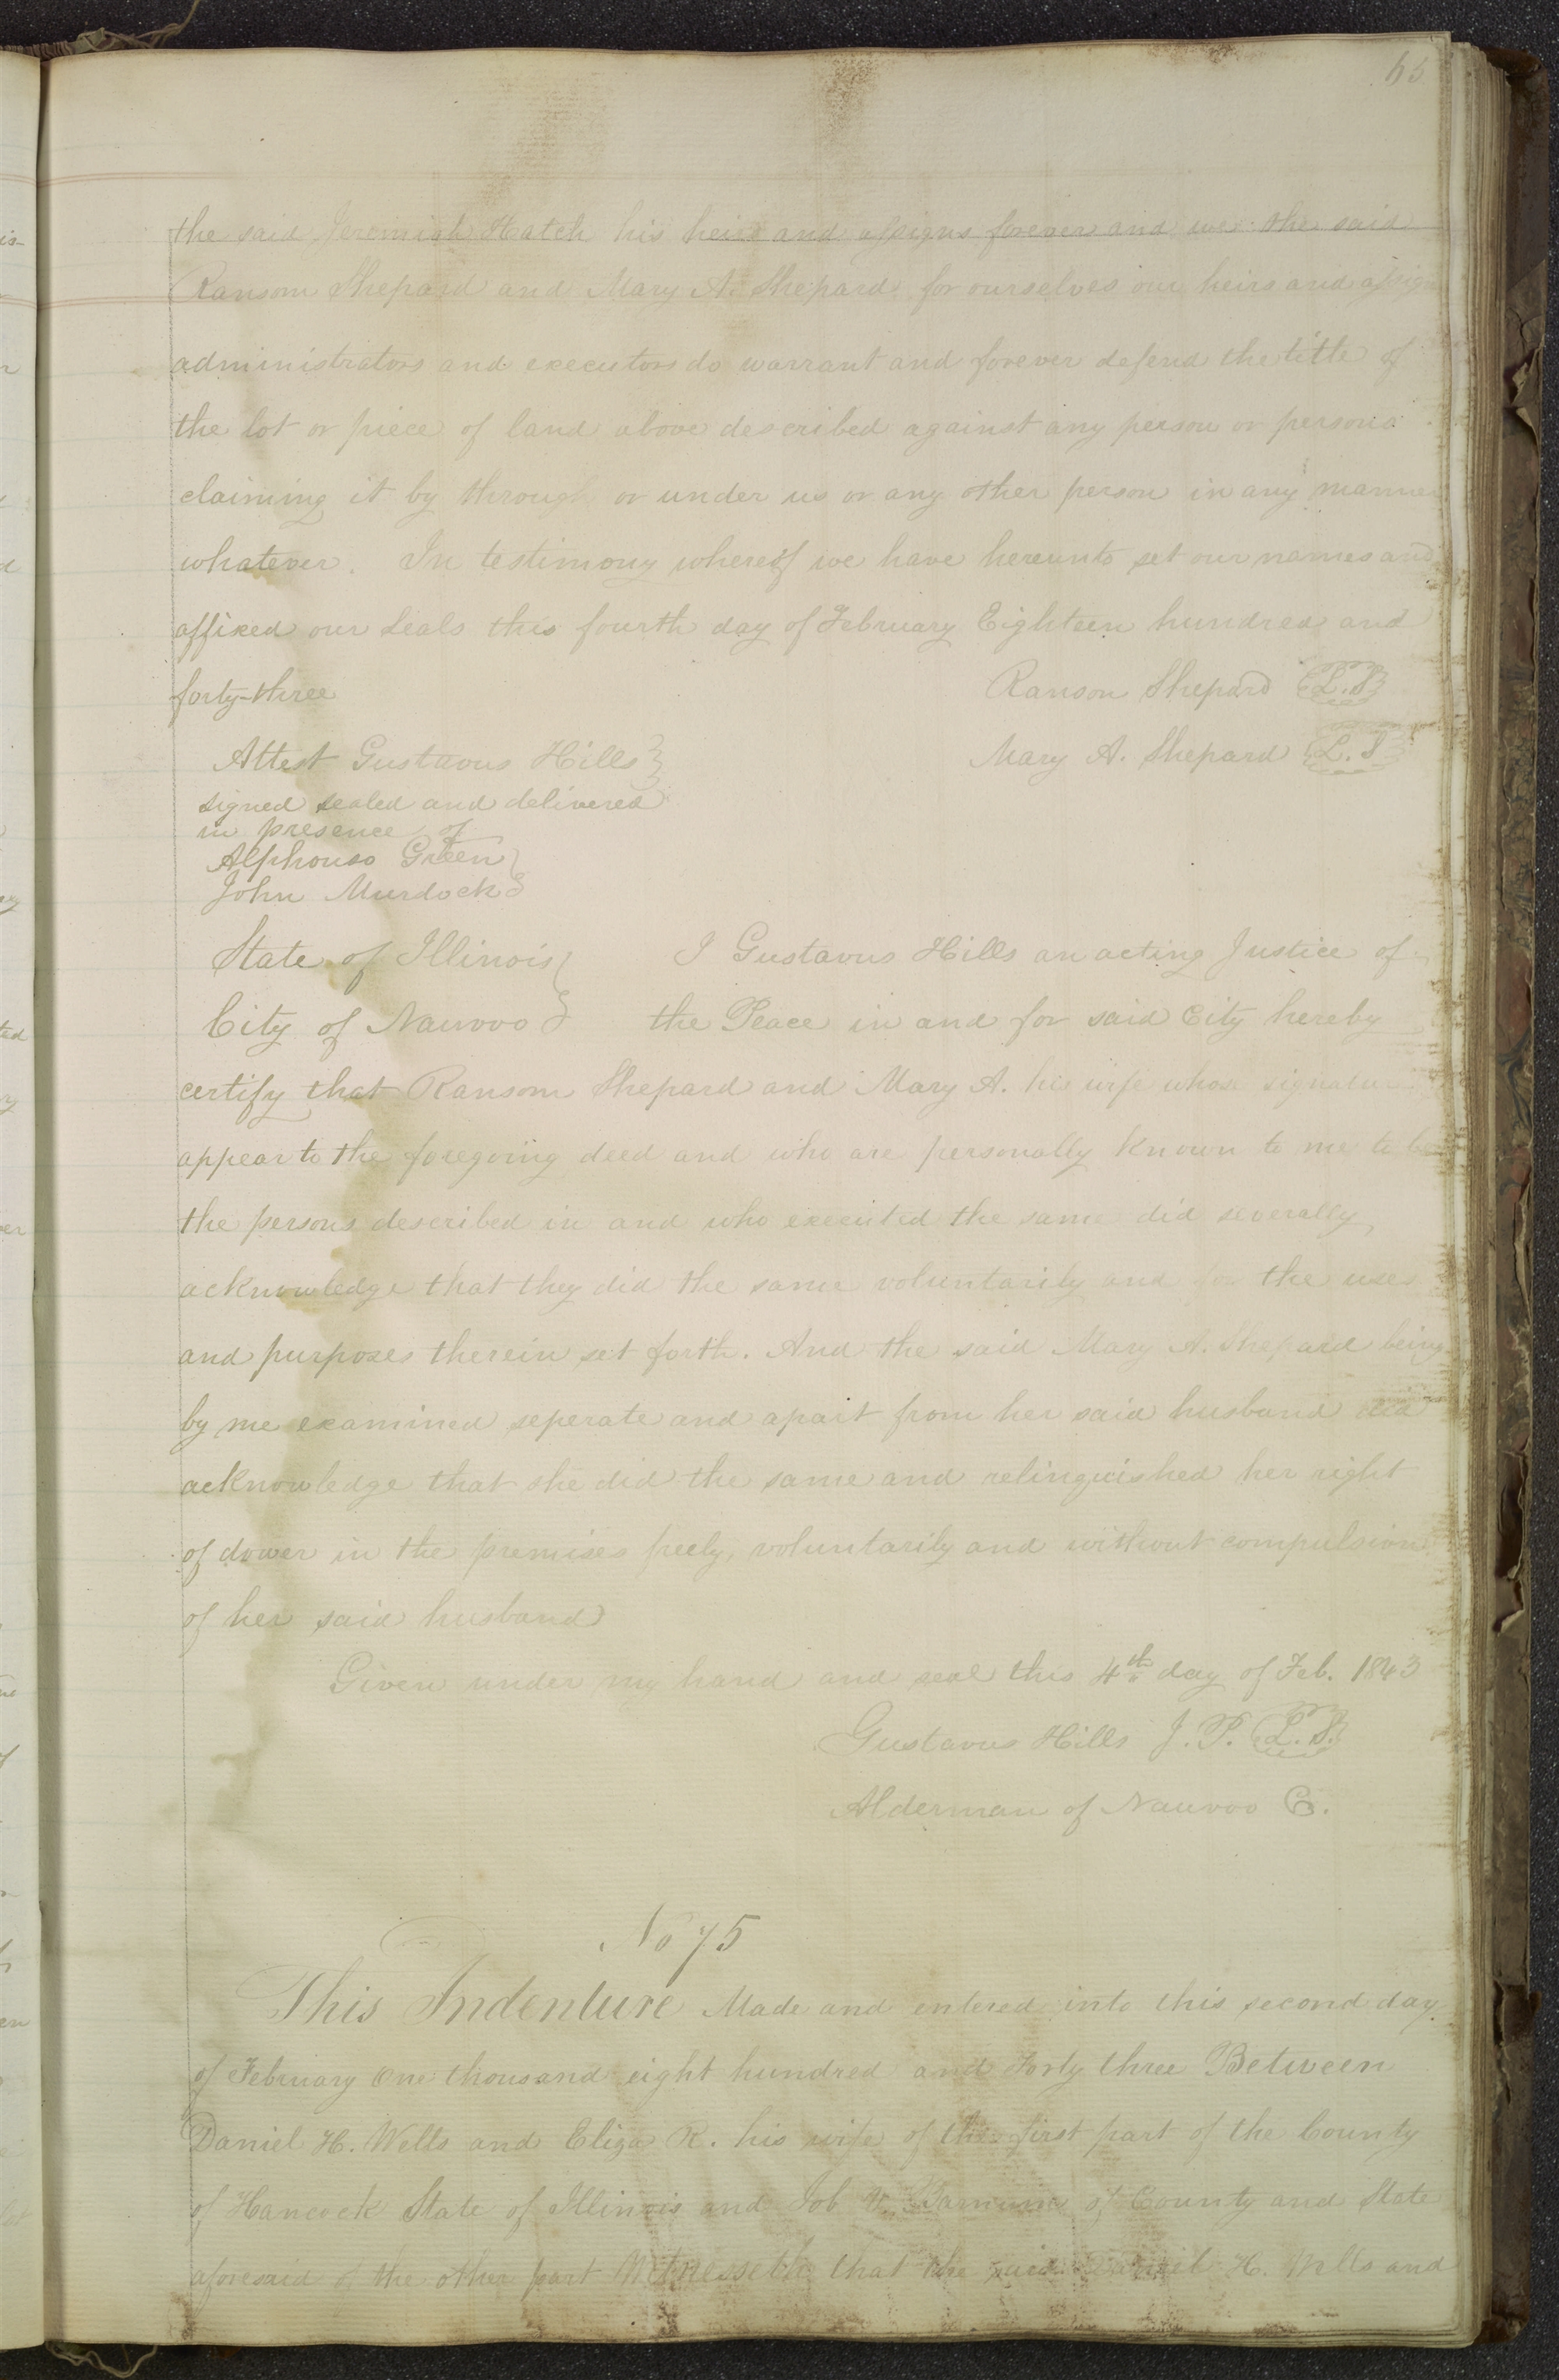 65
the said Jeremiah Hatch his heirs and assigns forever and we the said
Ransom Shepard and Mary A. Shepard for ourselves our heirs and assign
administrators and executors do warrant and forever defend the title of
the lot or piece of land above described against any person or persons
claiming it by through or under us or any other person in any manner
whatever. In testimony whereof we have hereunto set our names and
affixed our seals this fourth day of February Eighteen hundred and
forty-three Ranson Shepard L.S
Attest Gustavus Hills Mary A. Shepard L.S
signed sealed and delivered
in presence of
Alphonso Green
John Murdock
State of Illinois I Gustavus Hills an acting Justice of
City of Nauvoo the Peace in and for said City hereby
certify that Ransom Shepard and Mary A. his wife whose signature
appear to the foregoing deed and who are personally known to me to be
the persons described in and who executed the same did severally,
acknowledge that they did the same voluntarily and for the uses
and purposes therein set forth. And the said Mary A. Shepard being
by me examined seperate and apart from her said husband did
acknowledge that she did the same and relinquished her right
of dower in the premises freely, voluntarily and without compulsion
of her said husband
Given under my hand and seal this 4th day of Feb. 1843
Gustavus Hills J. P. L.S.
Alderman of Nauvoo C.
No 75
This Indenture Made and entered into this second day
of February One thousand eight hundred and Forty three Between
Daniel H. Wells and Eliza R. his wife of the first part of the County
of Hancock State of Illinois and Job V. Barnum of County and State
aforesaid of the other part Witnesseth that the said Daniel H. Wells and